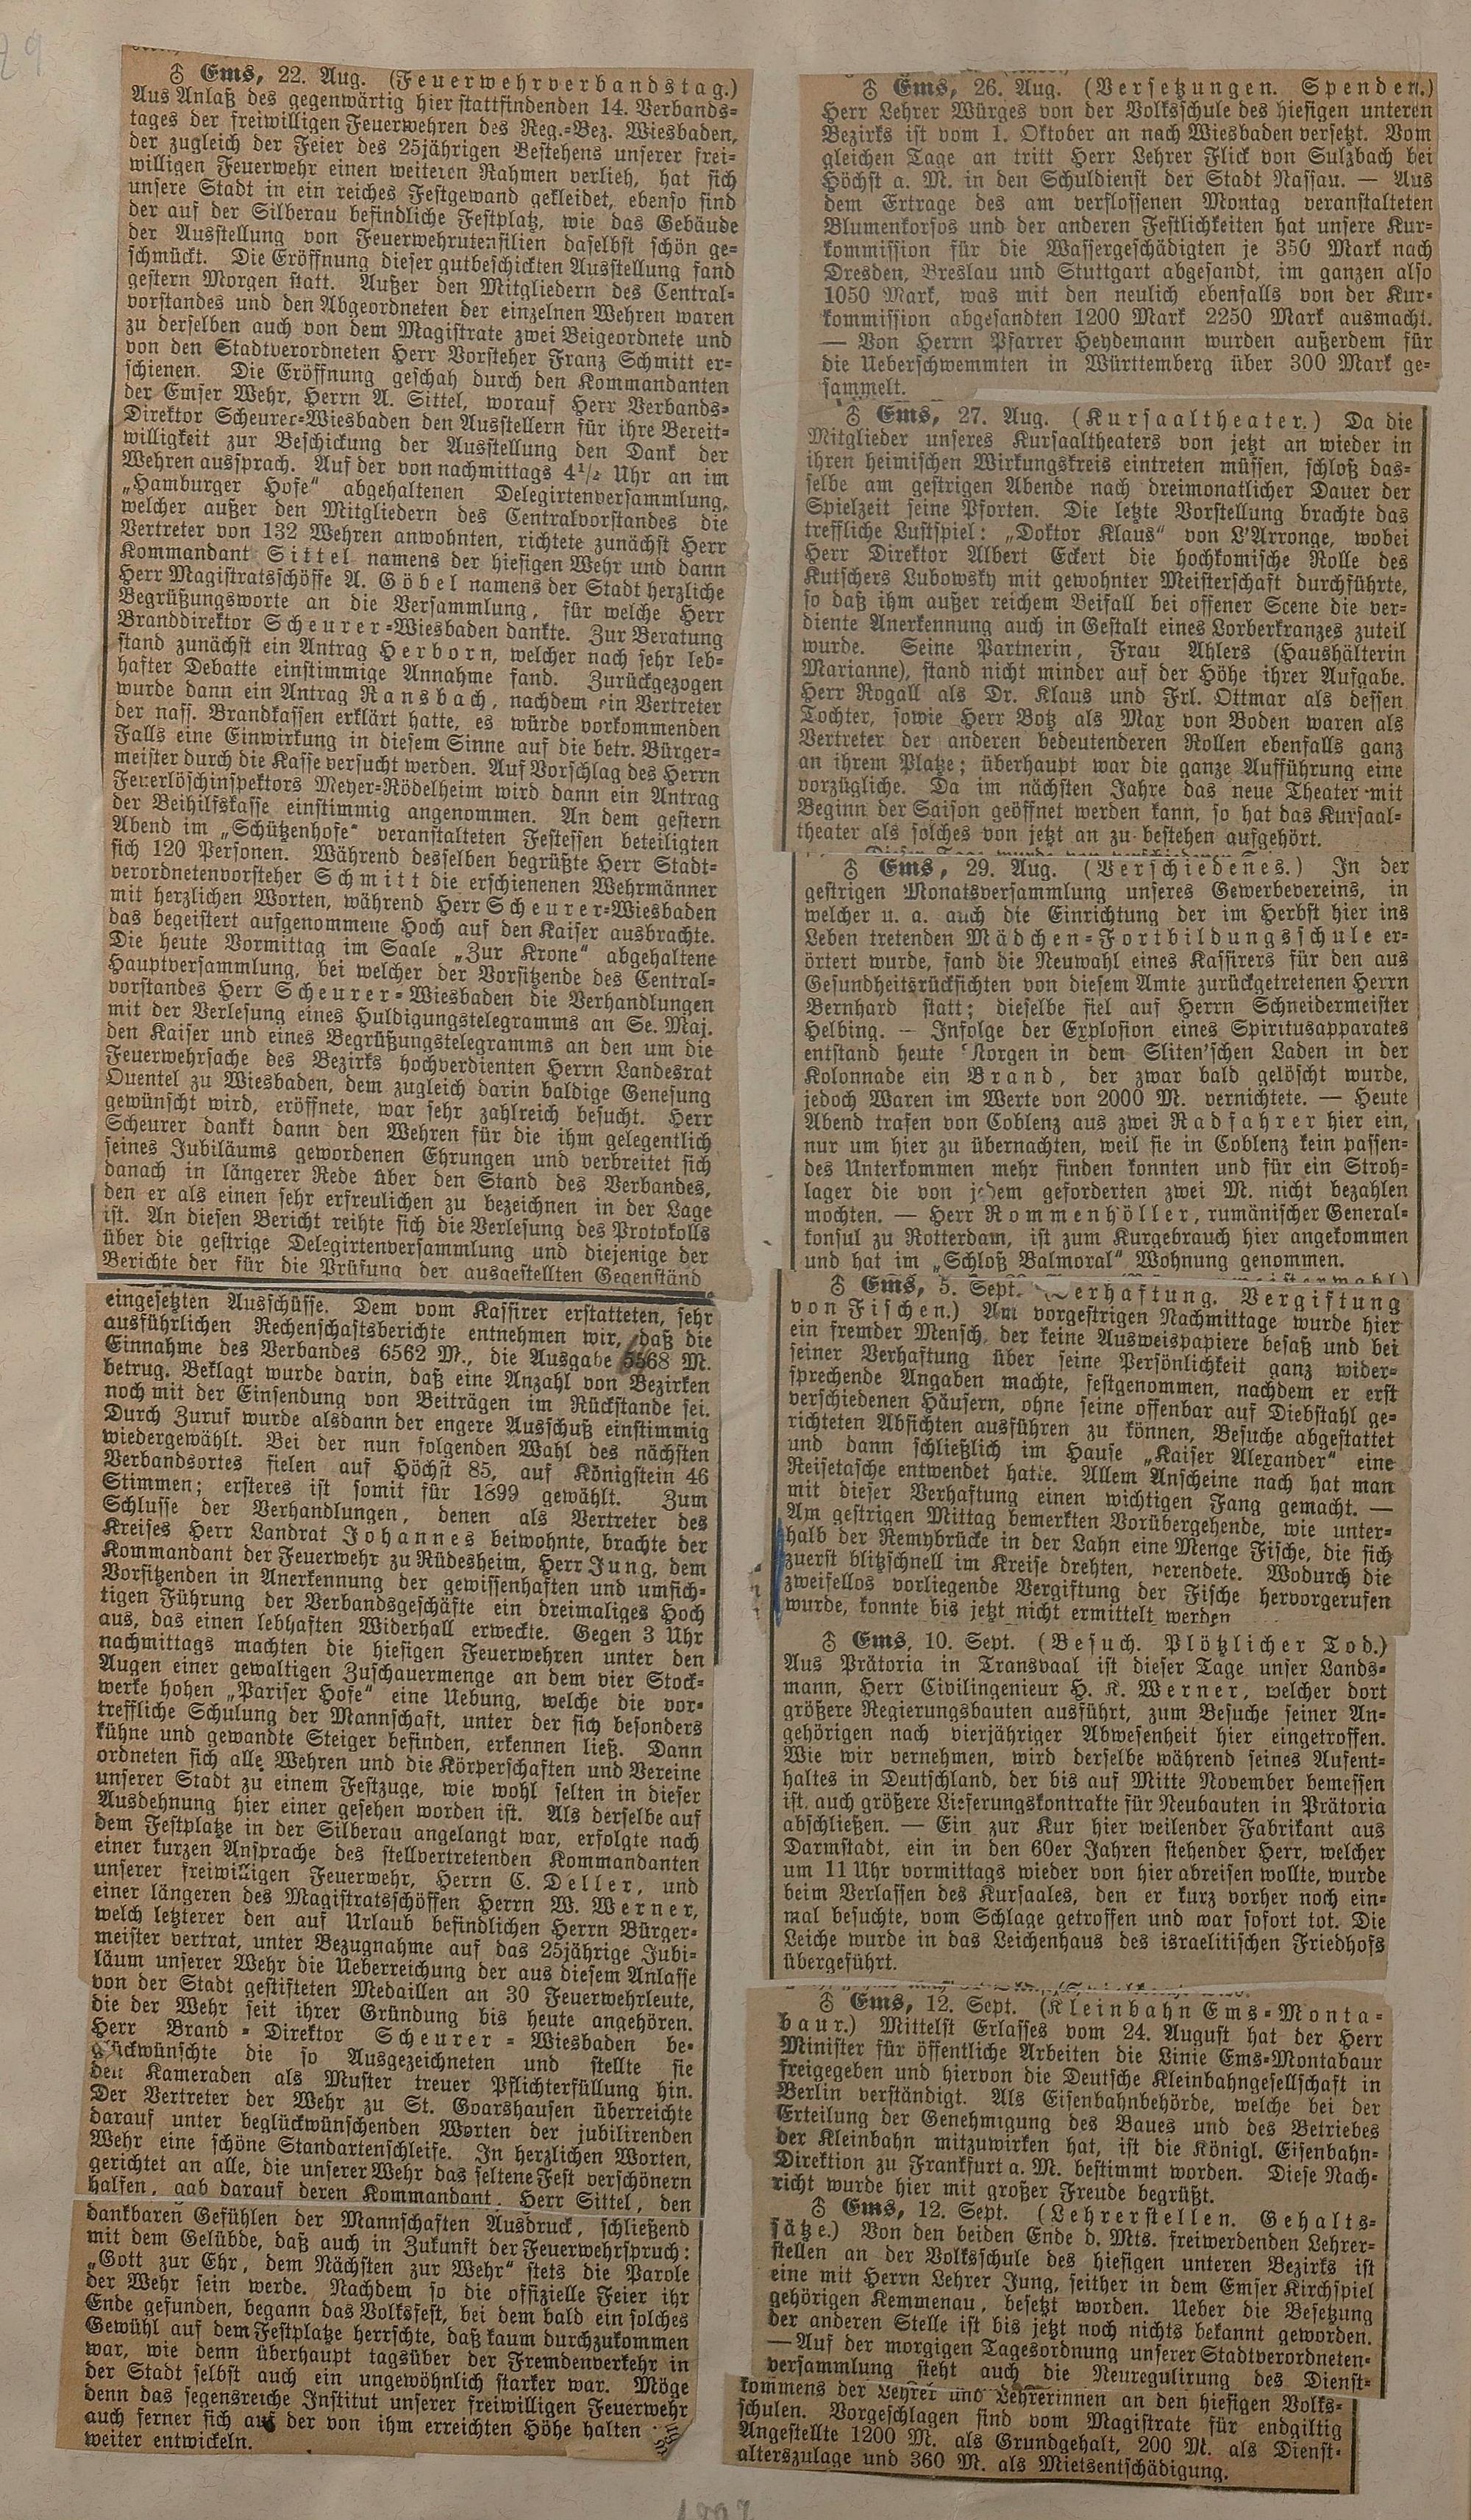 ♁ Ems, 22. Aug. (Feuerwehrverbandstag.)
Aus Anlaß des gegenwärtig hier stattfindenden 14. Verbands-
tages der freiwilligen Feuerwehren des Reg.-Bez. Wiesbaden,
der zugleich der Feier des 25jährigen Bestehens unserer frei-
willigen Feuerwehr einen weiteren Rahmen verlieh, hat sich
unsere Stadt in ein reiches Festgewand gekleidet, ebenso sind
der auf der Silberau befindliche Festplatz, wie das Gebäude
der Ausstellung von Feuerwehrutensilien daselbst schön ge-
schmückt. Die Eröffnung dieser gutbeschickten Ausstellung fand
gestern Morgen statt. Außer den Mitgliedern des Central-
vorstandes und den Abgeordneten der einzelnen Wehren waren
zu derselben auch von dem Magistrate zwei Beigeordnete und
von den Stadtverordneten Herr Vorsteher Franz Schmitt er-
schienen. Die Eröffnung geschah durch den Kommandanten
der Emser Wehr, Herrn A. Sittel, worauf Herr Verbands-
Direktor Scheurer-Wiesbaden den Ausstellern für ihre Bereit-
willigkeit zur Beschickung der Ausstellung den Dank der
Wehren aussprach. Auf der von nachmittags 4½ Uhr an im
„Hamburger Hofe“ abgehaltenen Delegirtenversammlung,
welcher außer den Mitgliedern des Centralvorstandes die
Vertreter von 132 Wehren anwohnten, richtete zunächst Herr
Kommandant Sittel namens der hiesigen Wehr und dann
Herr Magistratsschöffe A. Göbel namens der Stadt herzliche
Begrüßungsworte an die Versammlung, für welche Herr
Branddirektor Scheurer-Wiesbaden dankte. Zur Beratung
stand zunächst ein Antrag Herborn, welcher nach sehr leb-
hafter Debatte einstimmige Annahme fand. Zurückgezogen
wurde dann ein Antrag Ransbach, nachdem ein Vertreter
der nass. Brandkassen erklärt hatte, es würde vorkommenden
Falls eine Einwirkung in diesem Sinne auf die betr. Bürger-
meister durch die Kasse versucht werden. Auf Vorschlag des Herrn
Feuerlöschinspektors Meyer-Rödelheim wird dann ein Antrag
der Beihilfskasse einstimmig angenommen. An dem gestern
Abend im „Schützenhofe“ veranstalteten Festessen beteiligten
sich 120 Personen. Während desselben begrüßte Herr Stadt-
verordnetenvorsteher Schmitt die erschienenen Wehrmänner
mit herzlichen Worten, während Herr Scheurer-Wiesbaden
das begeistert aufgenommene Hoch auf den Kaiser ausbrachte.
Die heute Vormittag im Saale „Zur Krone“ abgehaltene
Hauptversammlung, bei welcher der Vorsitzende des Central-
vorstandes Herr Scheurer-Wiesbaden die Verhandlungen
mit der Verlesung eines Huldigungstelegramms an Se. Maj.
den Kaiser und eines Begrüßungstelegramms an den um die
Feuerwehrsache des Bezirks hochverdienten Herrn Landesrat
Quentel zu Wiesbaden, dem zugleich darin baldige Genesung
gewünscht wird, eröffnete, war sehr zahlreich besucht. Herr
Scheurer dankt dann den Wehren für die ihm gelegentlich
seines Jubiläums gewordenen Ehrungen und verbreitet sich
danach in längerer Rede über den Stand des Verbandes,
den er als einen sehr erfreulichen zu bezeichnen in der Lage
ist. An diesen Bericht reihte sich die Verlesung des Protokolls
über die gestrige Delegirtenversammlung und diejenige der
Berichte der für die Prüfung der ausgestellten Gegenständ
eingesetzten Ausschüsse. Dem vom Kassirer erstatteten, sehr
ausführlichen Rechenschaftsberichte entnehmen wir, daß die
Einnahme des Verbandes 6562 M., die Ausgabe 5568 M.
betrug. Beklagt wurde darin, daß eine Anzahl von Bezirken
noch mit der Einsendung von Beiträgen im Rückstande sei.
Durch Zuruf wurde alsdann der engere Ausschuß einstimmig
wiedergewählt. Bei der nun folgenden Wahl des nächsten
Verbandsortes fielen auf Höchst 85, auf Königstein 46
Stimmen; ersteres ist somit für 1899 gewählt. Zum
Schlusse der Verhandlungen, denen als Vertreter des
Kreises Herr Landrat Johannes beiwohnte, brachte der
Kommandant der Feuerwehr zu Rüdesheim, Herr Jung, dem
Vorsitzenden in Anerkennung der gewissenhaften und umsich-
tigen Führung der Verbandsgeschäfte ein dreimaliges Hoch
aus, das einen lebhaften Widerhall erweckte. Gegen 3 Uhr
nachmittags machten die hiesigen Feuerwehren unter den
Augen einer gewaltigen Zuschauermenge an dem vier Stock-
werke hohen „Pariser Hofe“ eine Uebung, welche die vor-
treffliche Schulung der Mannschaft, unter der sich besonders
kühne und gewandte Steiger befinden, erkennen ließ. Dann
ordneten sich alle Wehren und die Körperschaften und Vereine
unserer Stadt zu einem Festzuge, wie wohl selten in dieser
Ausdehnung hier einer gesehen worden ist. Als derselbe auf
dem Festplatze in der Silberau angelangt war, erfolgte nach
einer kurzen Ansprache des stellvertretenden Kommandanten
unserer freiwilligen Feuerwehr, Herrn C. Deller, und
einer längeren des Magistratsschöffen Herrn W. Werner,
welch letzterer den auf Urlaub befindlichen Herrn Bürger-
meister vertrat, unter Bezugnahme auf das 25jährige Jubi-
läum unserer Wehr die Ueberreichung der aus diesem Anlasse
von der Stadt gestifteten Medaillen an 30 Feuerwehrleute,
die der Wehr seit ihrer Gründung bis heute angehören.
Herr Brand-Direktor Scheurer-Wiesbaden be-
glückwünschte die so Ausgezeichneten und stellte sie
den Kameraden als Muster treuer Pflichterfüllung hin.
Der Vertreter der Wehr zu St. Goarshausen überreichte
darauf unter beglückwünschenden Worten der jubilirenden
Wehr eine schöne Standartenschleife. In herzlichen Worten,
gerichtet an alle, die unserer Wehr das seltene Fest verschönern
halfen, gab darauf deren Kommandant, Herr Sittel, den
dankbaren Gefühlen der Mannschaften Ausdruck, schließend
mit dem Gelübde, daß auch in Zukunft der Feuerwehrspruch:
„Gott zur Ehr, dem Nächsten zur Wehr“ stets die Parole
der Wehr sein werde. Nachdem so die offizielle Feier ihr
Ende gefunden, begann das Volksfest, bei dem bald ein solches
Gewühl auf dem Festplatze herrschte, daß kaum durchzukommen
war, wie denn überhaupt tagsüber der Fremdenverkehr in
der Stadt selbst auch ein ungewöhnlich starker war. Möge
denn das segensreiche Institut unserer freiwilligen Feuerwehr
auch ferner sich auf der von ihm erreichten Höhe halten
weiter entwickeln.
♁ Ems, 26. Aug. (Versetzungen. Spenden.)
Herr Lehrer Würges von der Volksschule des hiesigen unteren
Bezirks ist vom 1. Oktober an nach Wiesbaden versetzt. Vom
gleichen Tage an tritt Herr Lehrer Flick von Sulzbach bei
Höchst a. M. in den Schuldienst der Stadt Nassau. — Aus
dem Ertrage des am verflossenen Montag veranstalteten
Blumenkorsos und der anderen Festlichkeiten hat unsere Kur-
kommission für die Wassergeschädigten je 350 Mark nach
Dresden, Breslau und Stuttgart abgesandt, im ganzen also
1050 Mark, was mit den neulich ebenfalls von der Kur-
kommission abgesandten 1200 Mark 2250 Mark ausmacht.
— Von Herrn Pfarrer Heydemann wurden außerdem für
die Ueberschwemmten in Württemberg über 300 Mark ge-
sammelt.
♁ Ems, 27. Aug. (Kursaaltheater.) Da die
Mitglieder unseres Kursaaltheaters von jetzt an wieder in
ihren heimischen Wirkungskreis eintreten müssen, schloß das-
selbe am gestrigen Abende nach dreimonatlicher Dauer der
Spielzeit seine Pforten. Die letzte Vorstellung brachte das
treffliche Lustspiel: „Doktor Klaus“ von L'Arronge, wobei
Herr Direktor Albert Eckert die hochkomische Rolle des
Kutschers Lubowsky mit gewohnter Meisterschaft durchführte,
so daß ihm außer reichem Beifall bei offener Scene die ver-
diente Anerkennung auch in Gestalt eines Lorberkranzes zuteil
wurde. Seine Partnerin, Frau Ahlers (Haushälterin
Marianne), stand nicht minder auf der Höhe ihrer Aufgabe.
Herr Rogall als Dr. Klaus und Frl. Ottmar als dessen
Tochter, sowie Herr Botz als Max von Boden waren als
Vertreter der anderen bedeutenderen Rollen ebenfalls ganz
an ihrem Platze; überhaupt war die ganze Aufführung eine
vorzügliche. Da im nächsten Jahre das neue Theater mit
Beginn der Saison geöffnet werden kann, so hat das Kursaal-
theater als solches von jetzt an zu bestehen aufgehört.
♁ Ems, 29. Aug. (Verschiedenes.) In der
gestrigen Monatsversammlung unseres Gewerbevereins, in
welcher u. a. auch die Einrichtung der im Herbst hier ins
Leben tretenden Mädchen-Fortbildungsschule er-
örtert wurde, fand die Neuwahl eines Kassirers für den aus
Gesundheitsrücksichten von diesem Amte zurückgetretenen Herrn
Bernhard statt; dieselbe fiel auf Herrn Schneidermeister
Helbing. — Infolge der Explosion eines Spiritusapparates
entstand heute Morgen in dem Sliten'schen Laden in der
Kolonnade ein Brand, der zwar bald gelöscht wurde,
jedoch Waren im Werte von 2000 M. vernichtete. — Heute
Abend trafen von Coblenz aus zwei Radfahrer hier ein,
nur um hier zu übernachten, weil sie in Coblenz kein passen-
des Unterkommen mehr finden konnten und für ein Stroh-
lager die von jedem geforderten zwei M. nicht bezahlen
mochten. — Herr Rommenhöller, rumänischer General-
konsul zu Rotterdam, ist zum Kurgebrauch hier angekommen
und hat im „Schloß Balmoral“ Wohnung genommen.
♁ Ems, 5. Sept. erhaftung. Vergiftung
von Fischen.) Am vorgestrigen Nachmittage wurde hier
ein fremder Mensch, der keine Ausweispapiere besaß und bei
seiner Verhaftung über seine Persönlichkeit ganz wider-
sprechende Angaben machte, festgenommen, nachdem er erst
verschiedenen Häusern, ohne seine offenbar auf Diebstahl ge-
richteten Absichten ausführen zu können, Besuche abgestattet
und dann schließlich im Hause „Kaiser Alexander“ eine
Reisetasche entwendet hatte. Allem Anscheine nach hat man
mit dieser Verhaftung einen wichtigen Fang gemacht. —
Am gestrigen Mittag bemerkten Vorübergehende, wie unter-
halb der Remybrücke in der Lahn eine Menge Fische, die sich
zuerst blitzschnell im Kreise drehten, verendete. Wodurch die
zweifellos vorliegende Vergiftung der Fische hervorgerufen
wurde, konnte bis jetzt nicht ermittelt werden
♁ Ems, 10. Sept. (Besuch. Plötzlicher Tod.)
Aus Prätoria in Transvaal ist dieser Tage unser Lands-
mann, Herr Civilingenieur H. K. Werner, welcher dort
größere Regierungsbauten ausführt, zum Besuche seiner An-
gehörigen nach vierjähriger Abwesenheit hier eingetroffen.
Wie wir vernehmen, wird derselbe während seines Aufent-
haltes in Deutschland, der bis auf Mitte November bemessen
ist, auch größere Lieferungskontrakte für Neubauten in Prätoria
abschließen. — Ein zur Kur hier weilender Fabrikant aus
Darmstadt, ein in den 60er Jahren stehender Herr, welcher
um 11 Uhr vormittags wieder von hier abreisen wollte, wurde
beim Verlassen des Kursaales, den er kurz vorher noch ein-
mal besuchte, vom Schlage getroffen und war sofort tot. Die
Leiche wurde in das Leichenhaus des israelitischen Friedhofs
übergeführt.
♁ Ems, 12. Sept. (Kleinbahn Ems-Monta-
baur.) Mittelst Erlasses vom 24. August hat der Herr
Minister für öffentliche Arbeiten die Linie Ems-Montabaur
freigegeben und hiervon die Deutsche Kleinbahngesellschaft in
Berlin verständigt. Als Eisenbahnbehörde, welche bei der
Erteilung der Genehmigung des Baues und des Betriebes
der Kleinbahn mitzuwirken hat, ist die Königl. Eisenbahn-
Direktion zu Frankfurt a. M. bestimmt worden. Diese Nach-
richt wurde hier mit großer Freude begrüßt.
♁ Ems, 12. Sept. (Lehrerstellen. Gehalts-
sätze.) Von den beiden Ende d. Mts. freiwerdenden Lehrer-
stellen an der Volksschule des hiesigen unteren Bezirks ist
eine mit Herrn Lehrer Jung, seither in dem Emser Kirchspiel
gehörigen Kemmenau, besetzt worden. Ueber die Besetzung
der anderen Stelle ist bis jetzt noch nichts bekannt geworden.
— Auf der morgigen Tagesordnung unserer Stadtverordneten-
versammlung steht auch die Neuregulirung des Dienst-
kommens der Lehrer und Lehrerinnen an den hiesigen Volks-
schulen. Vorgeschlagen sind vom Magistrate für endgiltig
Angestellte 1200 M. als Grundgehalt, 200 M. als Dienst-
alterszulage und 360 M. als Mietsentschädigung.